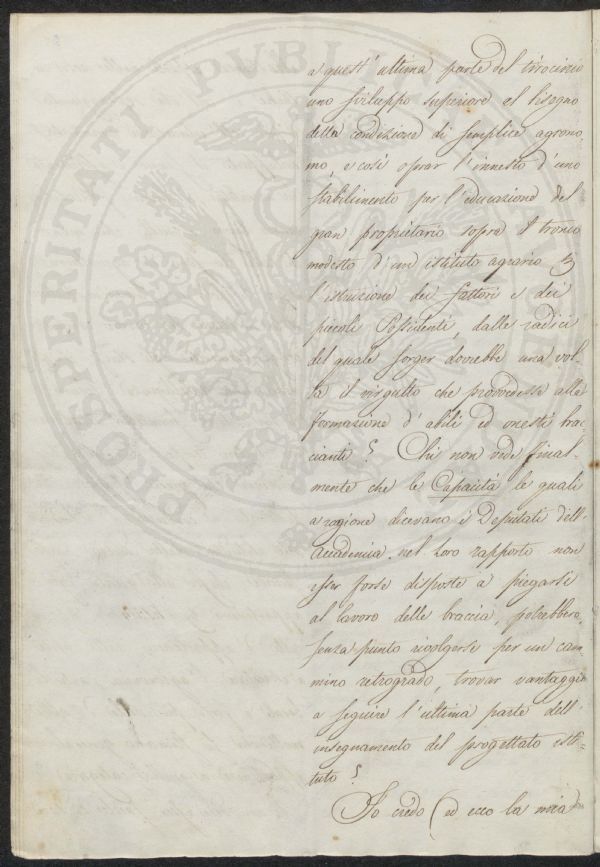 a quest' ultima parte del tirocinio
uno sviluppo superiore al bisogno
della condizione di semplice agrono-
mo, e così oprar l'innesto d'uno
stabilimento per l'educazione del
gran proprietario sopra il tronco
modesto d'un istituto agrario per
l'istruzione dei fattori e dei
piccoli Possidenti, dalle radici
del quale sorger dovrebbe una vol-
ta il virgulto che provvedesse alla
formazione d'abili ed onesti brac-
cianti? Chi non vede final-
mente che le Capacità le quali
a ragione dicevano i Deputati dell'
Accademia nel loro rapporto non
esser forse disposte a piegarsi
al lavoro delle braccia, potrebbero,
senza punto rivolgersi per un cam-
mino retrogrado, trovar vantaggio
a seguire l'ultima parte dell'
insegnamento del progettato isti-
tuto?
Io credo (ed ecco la mia
PROSPERITATI PVBLICAE